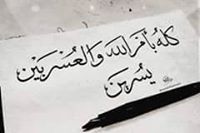 كله بأمر الله والعسر بين
يسرين